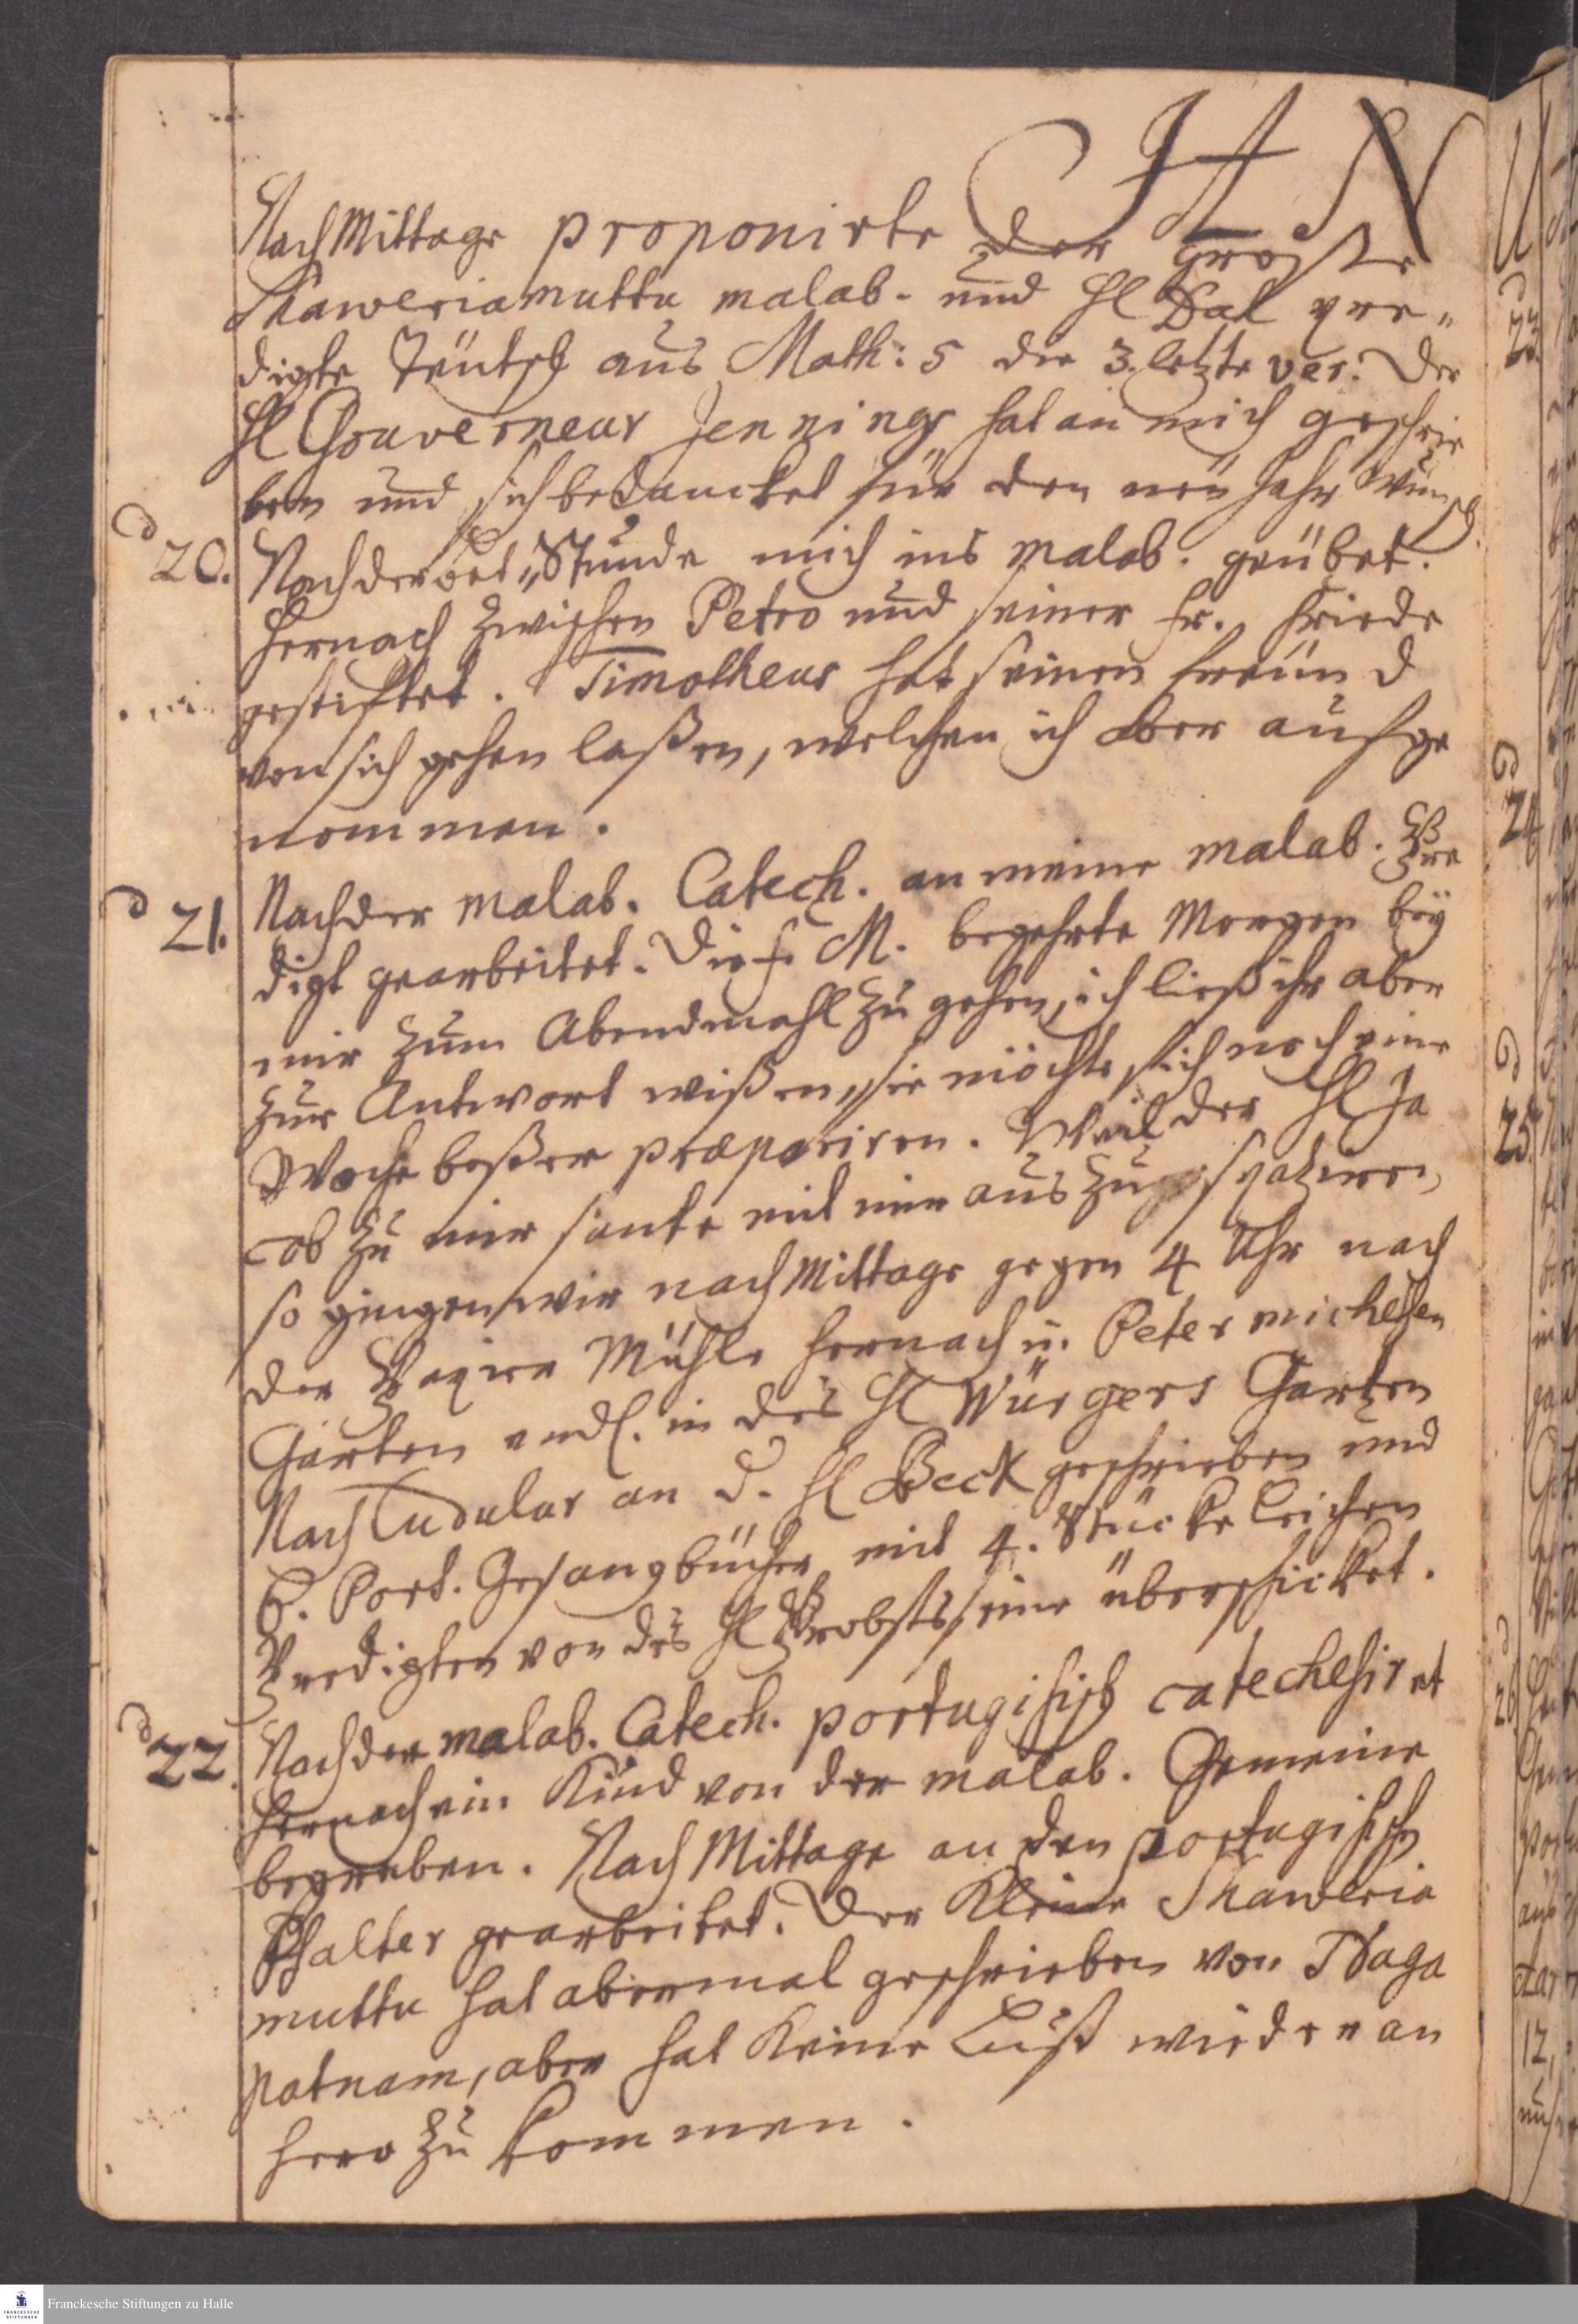 JAN
Nach Mittage proponirte der große
Rawenamuttu malab. und H Dal pre„
digte Teütsch aus Math: 5 die 3. letzte vers. Der
H Gouverneur Jennings hat an mich geschrie
ben und sich bedancket für den neü Jahr Wunsch.
d 20. Nach der bet„Stunde mich ins malab. geübet.
Hernach zwischen Petro und seiner Fr. Friede
gestifftet. Timotheus hat seinen freünd
von sich gehen laßen, welchen ich aber aufge
nommen.
d 21. Nach der malab. Catech. an meine malab. Pre
digt gearbeitet. Die Fr. M. begehrte Morgen beÿ
mir zum Abendmahl zu gehen, ich ließ ihr aber
zur Antwort wißen, sie möchte sich noch eine
Woche beßer præpariren. Weil der H Ja
cob zu mir sante mit mir aus zu spatziren,
so gingen wir nach Mittage gegen 4 Uhr nach
der Papier Mühle hernach in Peter michelsen
Garten endl. in des H Würgers Garten
Nach Cudulur an d. H Beck geschrieben und
6. Port. Gesangbücher mit 4. Stücke leichen
Predigten von des H Probsts seine überschicket.
d 22. Nach der malab. Catech. portugisisch catechesiret
hernach ein Kind von der malab. Gemeine
begraben. Nach Mittage an den portugisisch
Psalter gearbeitet. Der Kleine Rawena
muttu hat abermal geschrieben von Naga
patnam, aber hat Keine Lust wieder an
hero zu kommen.
23.
24
25.
26
12,
Franckesche Stiftungen zu Halle
FRANCKESCHE
STIFTUNGEN